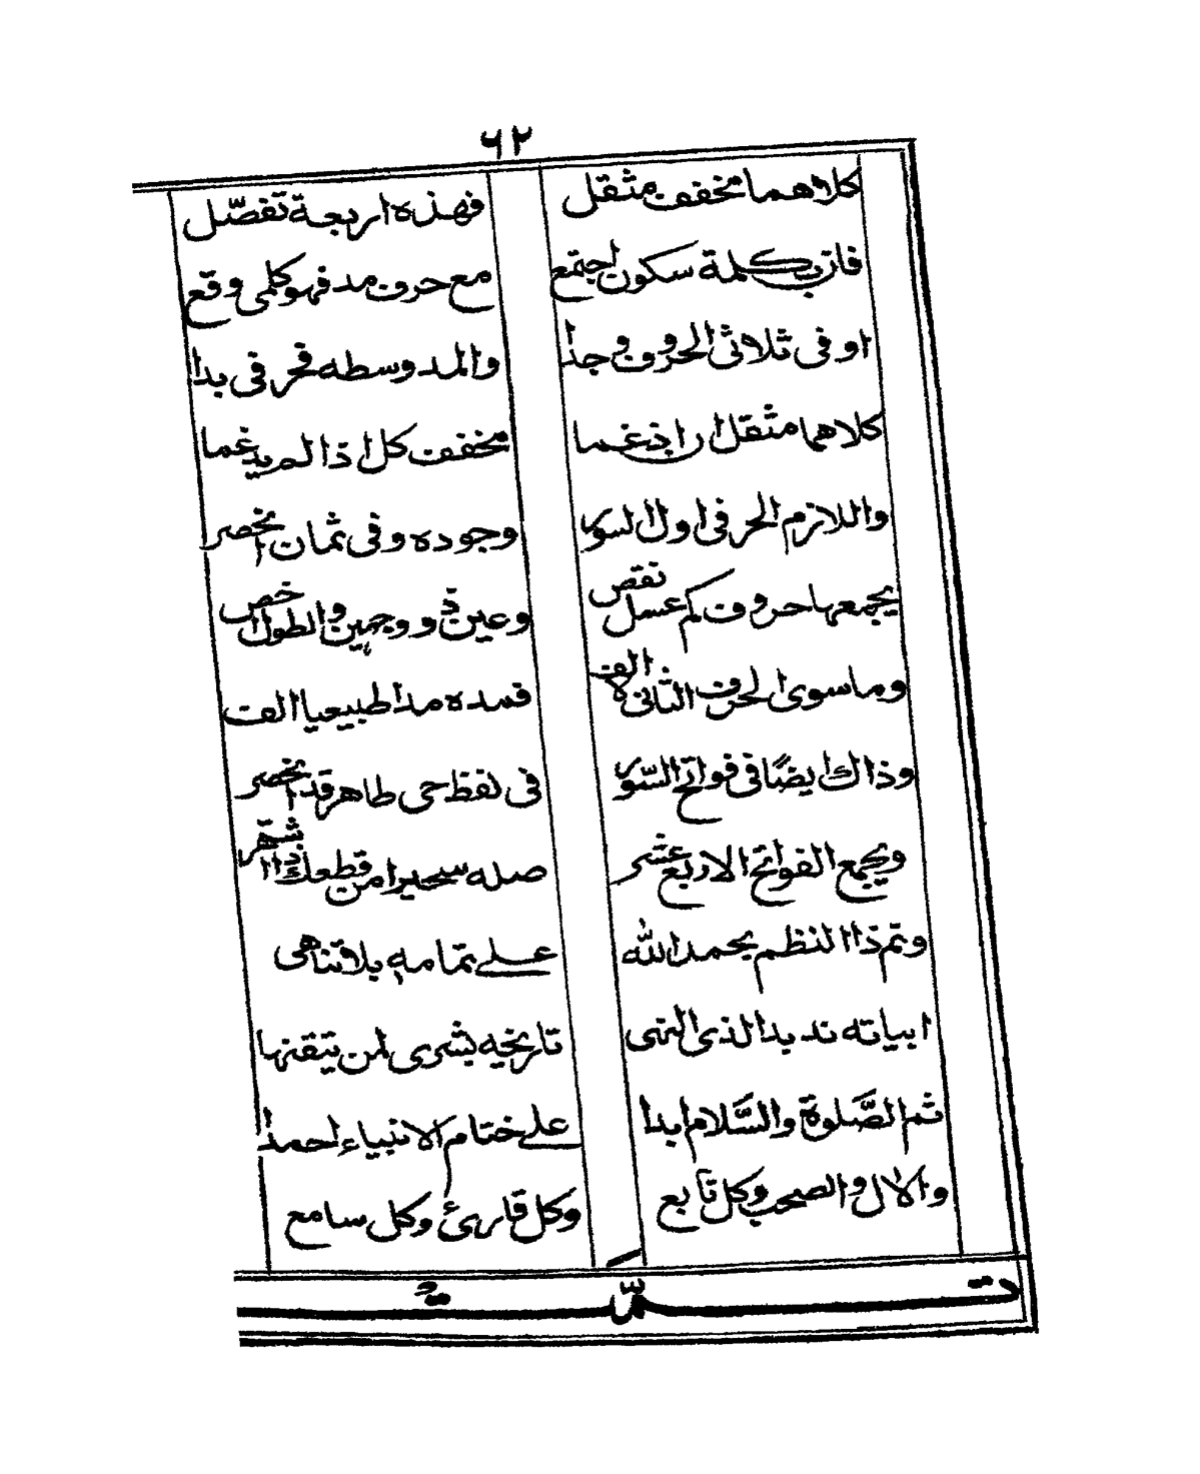 ٦٢
كلاهما مخفف مثقل فهذه اربعة تفصّل
فان بكلمة سكون اجتمع مع حرف مد فهو كلمى وقع
او فى ثلاثى الحروف وجدا والمد وسطه فحرفى بدا
كلاهما مثقل ان ادغما مخفف كل اذا لم يدغما
واللازم الحرفى اول السور وجوده وفى ثمان انحصر
يجمعها حروف كم عسل نقص وعين ذو وجهين والطول اخص
وما سوى الحرف الثانى لا الف فمده مدا طبيعيا الف
وذاك ايضًا فى فواتح السّور فى لفظ حى طاهر قد انحصر
ويجمع الفواتح الاربع عشر صله سحيرا من قطعك ذا اشتهر
وتم ذا النظم بحمد الله على تمامه بلا تناهى
ابياته ند بدا لذى النهى تاريخه بشرى لمن يتقنها
ثم الصَّلوة والسَّلام ابدا على ختام الانبياء احمدا
والال والصحب وكل تابع وكل قارئ وكل سامع
تمّت